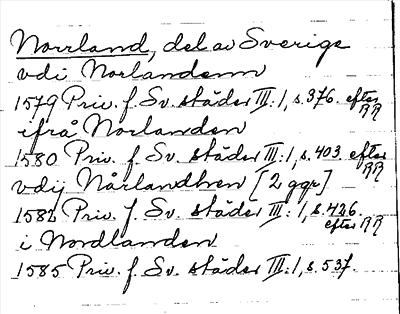 Norrland, del av Sverige
vdi Norlandenn
1579 Priv. f. Sv. städer III:1, s. 376. efter RR
ifrå Norlanden
1580 Priv. f. Sv. städer III:1, s. 403. efter RR
vdij Nårlandhen [2 ggr]
1582 Priv. f. Sv. städer III:1, s. 426. efter RR
i Nordlanden
1585 Priv. f. Sv. städer III:1, s. 537.